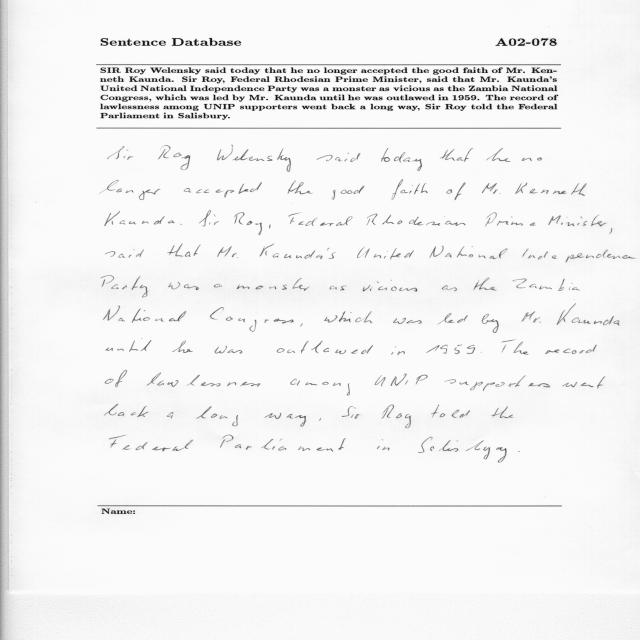 Sentence Database A02-078
SIR Roy Welensky said today that he no longer accepted the good faith of Mr. Ken-
neth Kaunda. Sir Roy, Federal Rhodesian Prime Minister, said that Mr. Kaunda's
United National Independence Party was a monster as vicious as the Zambia National
Congress, which was led by Mr. Kaunda until he was outlawed in 1959. The record of
lawlessness among UNIP supporters went back a long way, Sir Roy told the Federal
Parliament in Salisbury.
Sir Roy Welensky said today that he no
longer accepted the good faith of Mr. Kenneth
Kaunda. Sir Roy, Federal Rhodesian Prime Minister,
said that Mr. Kaunda's United National Independence
Party was a monster as vicious as the Zambia
National Congress, which was led by Mr. Kaunda
until he was outlawed in 1959. The record
of lawlessness among UNIP supporters went
back a long way, Sir Roy told the
Federal Parliament in
Name: